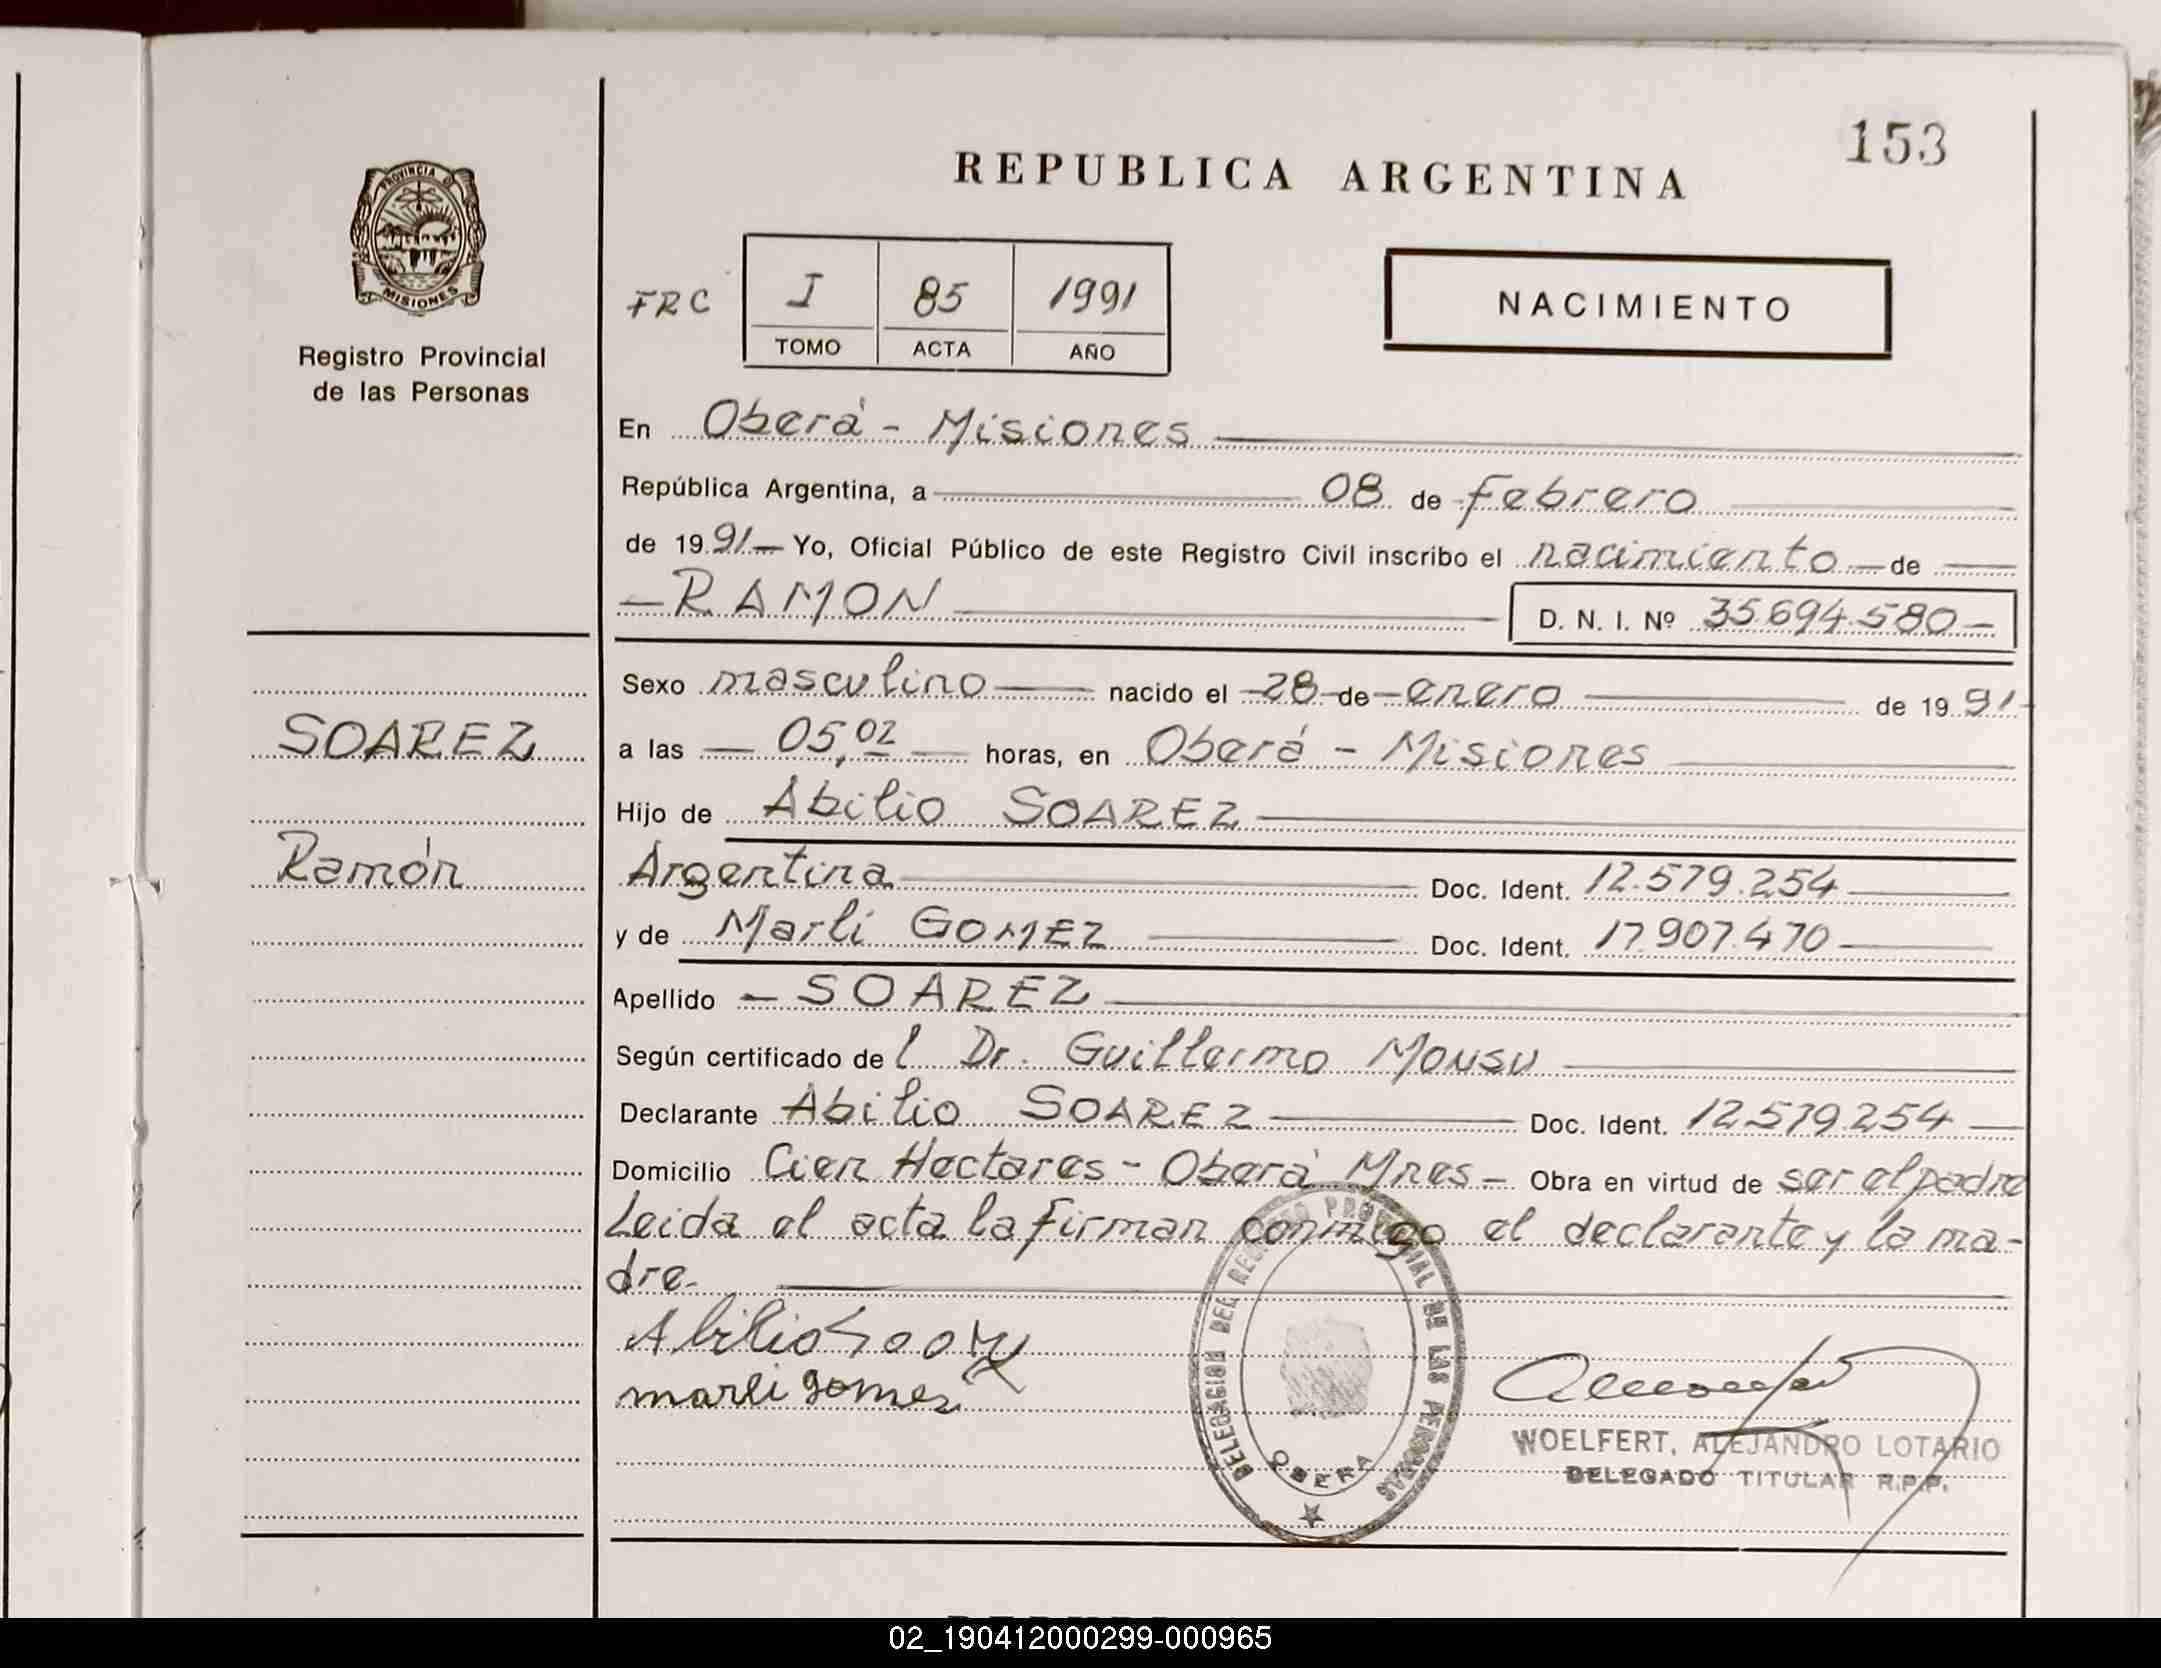 153
REPUBLICA ARGENTINA
PROVINCIA D
MISIONES
Registro Provincial
de las Personas
FRC
I 85 1991
TOMO ACTA AÑO
NACIMIENTO
En Oberá - Misiones
República Argentina, a 08 de Febrero
de 1991 Yo, Oficial Público de este Registro Civil inscribo el nacimiento de
RAMON D. N. I. Nº 35.694.580
Sexo masculino nacido el 28 de enero de 1991
SOAREZ
a las 05,02 horas, en Oberá - Misiones
Hijo de Abilio SOAREZ
Ramón
Argentina Doc. Ident. 12.579.254
y de Marli GOMEZ Doc. Ident. 17.907.470
Apellido SOAREZ
Según certificado del Dr. Guillermo MOUSU
Declarante Abilio SOAREZ Doc. Ident. 12.579.254
Domicilio Cien Hectares - Oberá Mnes - Obra en virtud de ser el padre
Leida el acta la firman conmigo el declarante y la ma-
dre.
Abilio
marli gomez
DELEGACION DEL REGISTRO PROVINCIAL DE LAS PERSONAS
OBERA
WOELFERT, ALEJANDRO LOTARIO
DELEGADO TITULAR R.P.P.
02_190412000299-000965